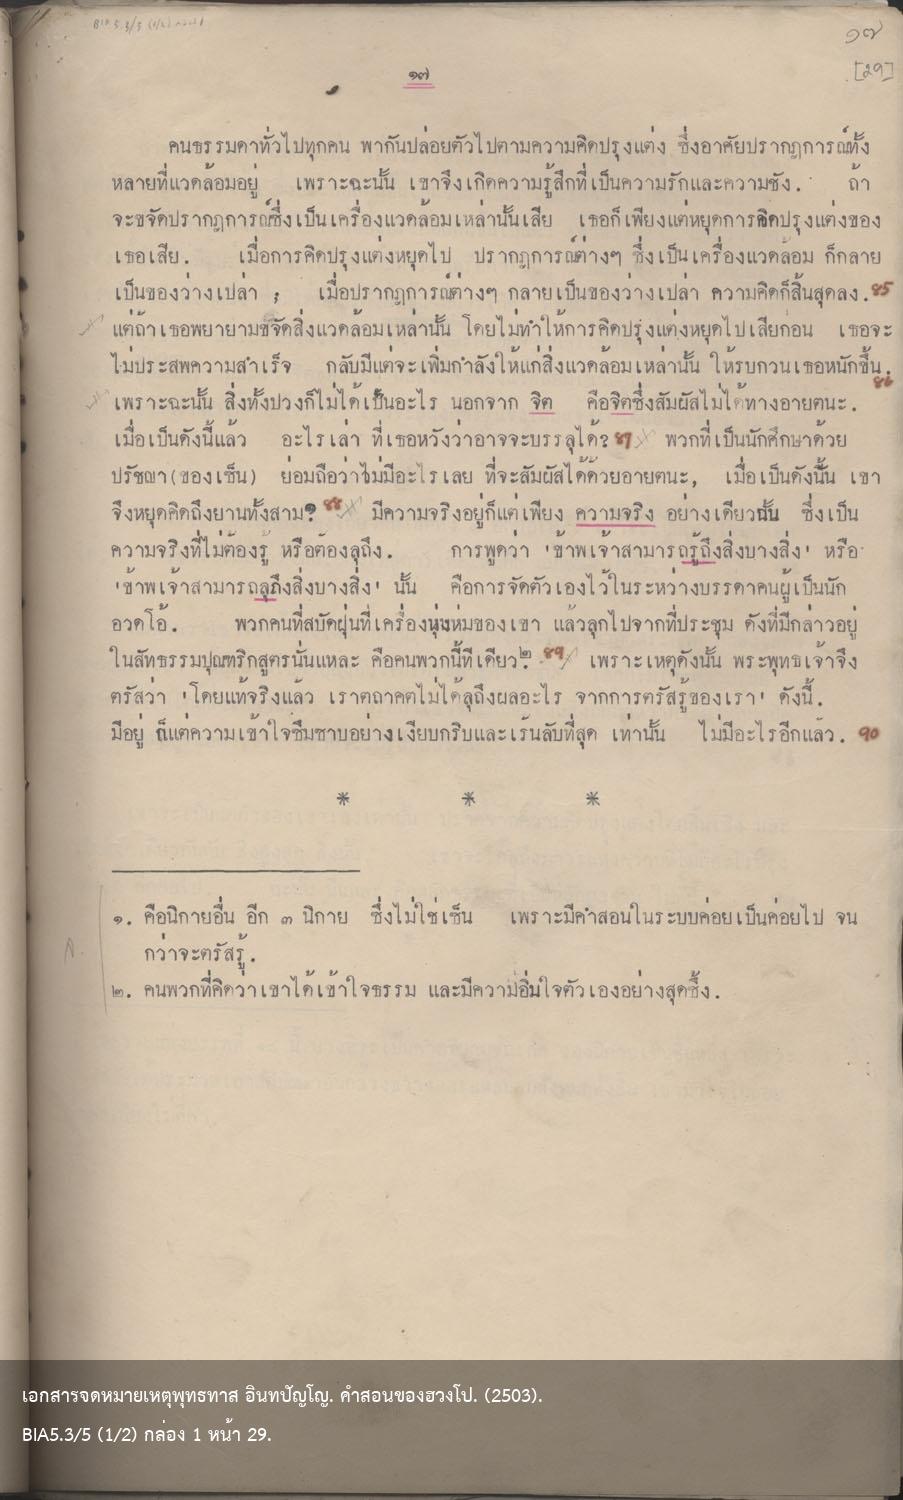 BIA 5.3/5 (1/2) กล่อง 1
๑๗
[29]
๑๗
คนธรรมดาทั่วไปทุกคน พากันปล่อยตัวไปตามความคิดปรุงแต่ง ซึ่งอาศัยปรากฏการณ์ทั้ง
หลายที่แวดล้อมอยู่ เพราะฉะนั้น เขาจึงเกิดความรู้สึกที่เป็นความรักและความชัง. ถ้า
จะขจัดปรากฏการณ์ซึ่งเป็นเครื่องแวดล้อมเหล่านั้นเสีย เธอก็เพียงแต่หยุดการคิดปรุงแต่งของ
เธอเสีย. เมื่อการคิดปรุงแต่งหยุดไป ปรากฏการณ์ต่างๆ ซึ่งเป็นเครื่องแวดล้อม ก็กลาย
เป็นของว่างเปล่า ; เมื่อปรากฏการณ์ต่างๆ กลายเป็นของว่างเปล่า ความคิดก็สิ้นสุดลง. 85
แต่ถ้าเธอพยายามขจัดสิ่งแวดล้อมเหล่านั้น โดยไม่ทำให้การคิดปรุงแต่งหยุดไปเสียก่อน เธอจะ
ไม่ประสพความสำเร็จ กลับมีแต่จะเพิ่มกำลังให้แก่สิ่งแวดล้อมเหล่านั้น ให้รบกวนเธอหนักขึ้น. 86
เพราะฉะนั้น สิ่งทั้งปวงก็ไม่ได้เป็นอะไร นอกจาก จิต คือจิตซึ่งสัมผัสไม่ได้ทางอายตนะ.
เมื่อเป็นดังนี้แล้ว อะไรเล่า ที่เธอหวังว่าอาจจะบรรลุได้? 87 พวกที่เป็นนักศึกษาด้วย
ปรัชญา(ของเซ็น) ย่อมถือว่าไม่มีอะไรเลย ที่จะสัมผัสได้ด้วยอายตนะ, เมื่อเป็นดังนี้นั้น เขา
จึงหยุดคิดถึงยานทั้งสาม? 88 มีความจริงอยู่ก็แต่เพียง ความจริง อย่างเดียวนั้น ซึ่งเป็น
ความจริงที่ไม่ต้องรู้ หรือต้องลุถึง. การพูดว่า 'ข้าพเจ้าสามารถรู้ถึงสิ่งบางสิ่ง' หรือ
'ข้าพเจ้าสามารถลุถึงสิ่งบางสิ่ง' นั้น คือการจัดตัวเองไว้ในระหว่างบรรดาคนผู้เป็นนัก
อวดโอ้. พวกคนที่สบัดฝุ่นที่เครื่องนุ่งห่มของเขา แล้วลุกไปจากที่ประชุม ดังที่มีกล่าวอยู่
ในสัทธรรมปุณฑริกสูตรนั่นแหละ คือคนพวกนี้ทีเดียว๒. 89 เพราะเหตุดังนั้น พระพุทธเจ้าจึง
ตรัสว่า 'โดยแท้จริงแล้ว เราตถาคตไม่ได้ลุถึงผลอะไร จากการตรัสรู้ของเรา' ดังนี้.
มีอยู่ ก็แต่ความเข้าใจซึมซาบอย่างเงียบกริบและเร้นลับที่สุด เท่านั้น ไม่มีอะไรอีกแล้ว. 90
* * *
๑. คือนิกายอื่น อีก ๓ นิกาย ซึ่งไม่ใช่เซ็น เพราะมีคำสอนในระบบค่อยเป็นค่อยไป จน
กว่าจะตรัสรู้.
๒. คนพวกที่คิดว่าเขาได้เข้าใจธรรม และมีความอิ่มใจตัวเองอย่างสุดซึ้ง.
เอกสารจดหมายเหตุพุทธทาส อินทปัญโญ. คำสอนของฮวงโป. (2503).
BIA5.3/5 (1/2) กล่อง 1 หน้า 29.